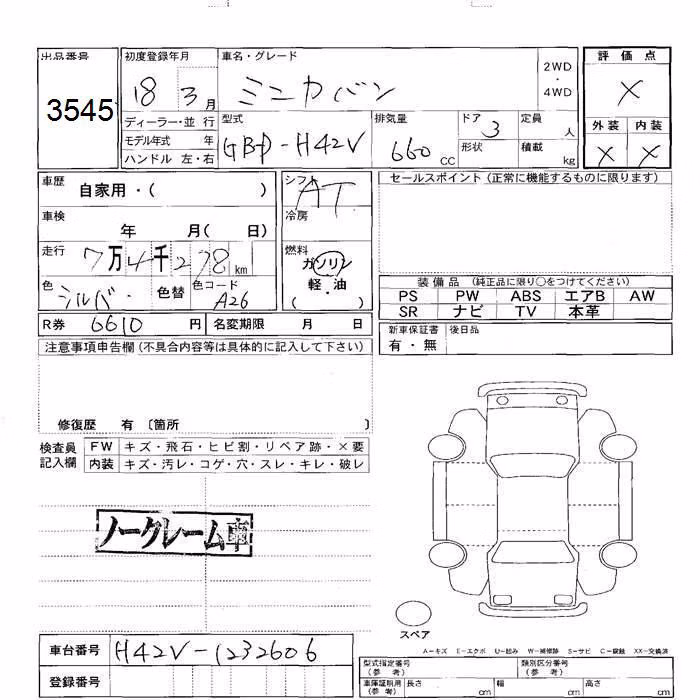 出品番号
3545
初度登録年月
18 3月
ディーラー・並 行
モデル年式 年
ハンドル 左・右
車名・グレード
ミニカバン
2WD
・
4WD
型式
GBD-H42V
排気量
660 CC
ドア 3
形状
定員 人
積載 kg
評価点
X
外装 内装
X X
車歴
自家用・( )
車検
年 月( 日)
走行
7万4千278km
色
シルバー
色替
色コード
A26
シフト
AT
冷房
燃料
ガソリン
軽・油
( ・ )
R券 6610 円
名変期限 月 日
セールスポイント(正常に機能するものに限ります)
装備品(純正品に限り○をつけてください)
PS PW ABS エアB AW
SR ナビ TV 本革
新車保証書
有・無
後日品
注意事項申告欄(不具合内容等は具体的に記入して下さい)
修復歴 有 〔箇所 〕
検査員
記入欄
FW キズ・飛石・ヒビ割・リペア跡・×要
内装 キズ・汚レ・コゲ・穴・スレ・キレ・破レ
ノークレーム車
スペア
A−キズ E−エクボ U−凹み W−補修跡 S−サビ C−腐蝕 XX−交換済
車台番号 H42V-1232606
登録番号
型式指定番号
(参考)
類別区分番号
(参考)
車庫証明用
(参考)
長さ cm
幅 cm
高さ cm